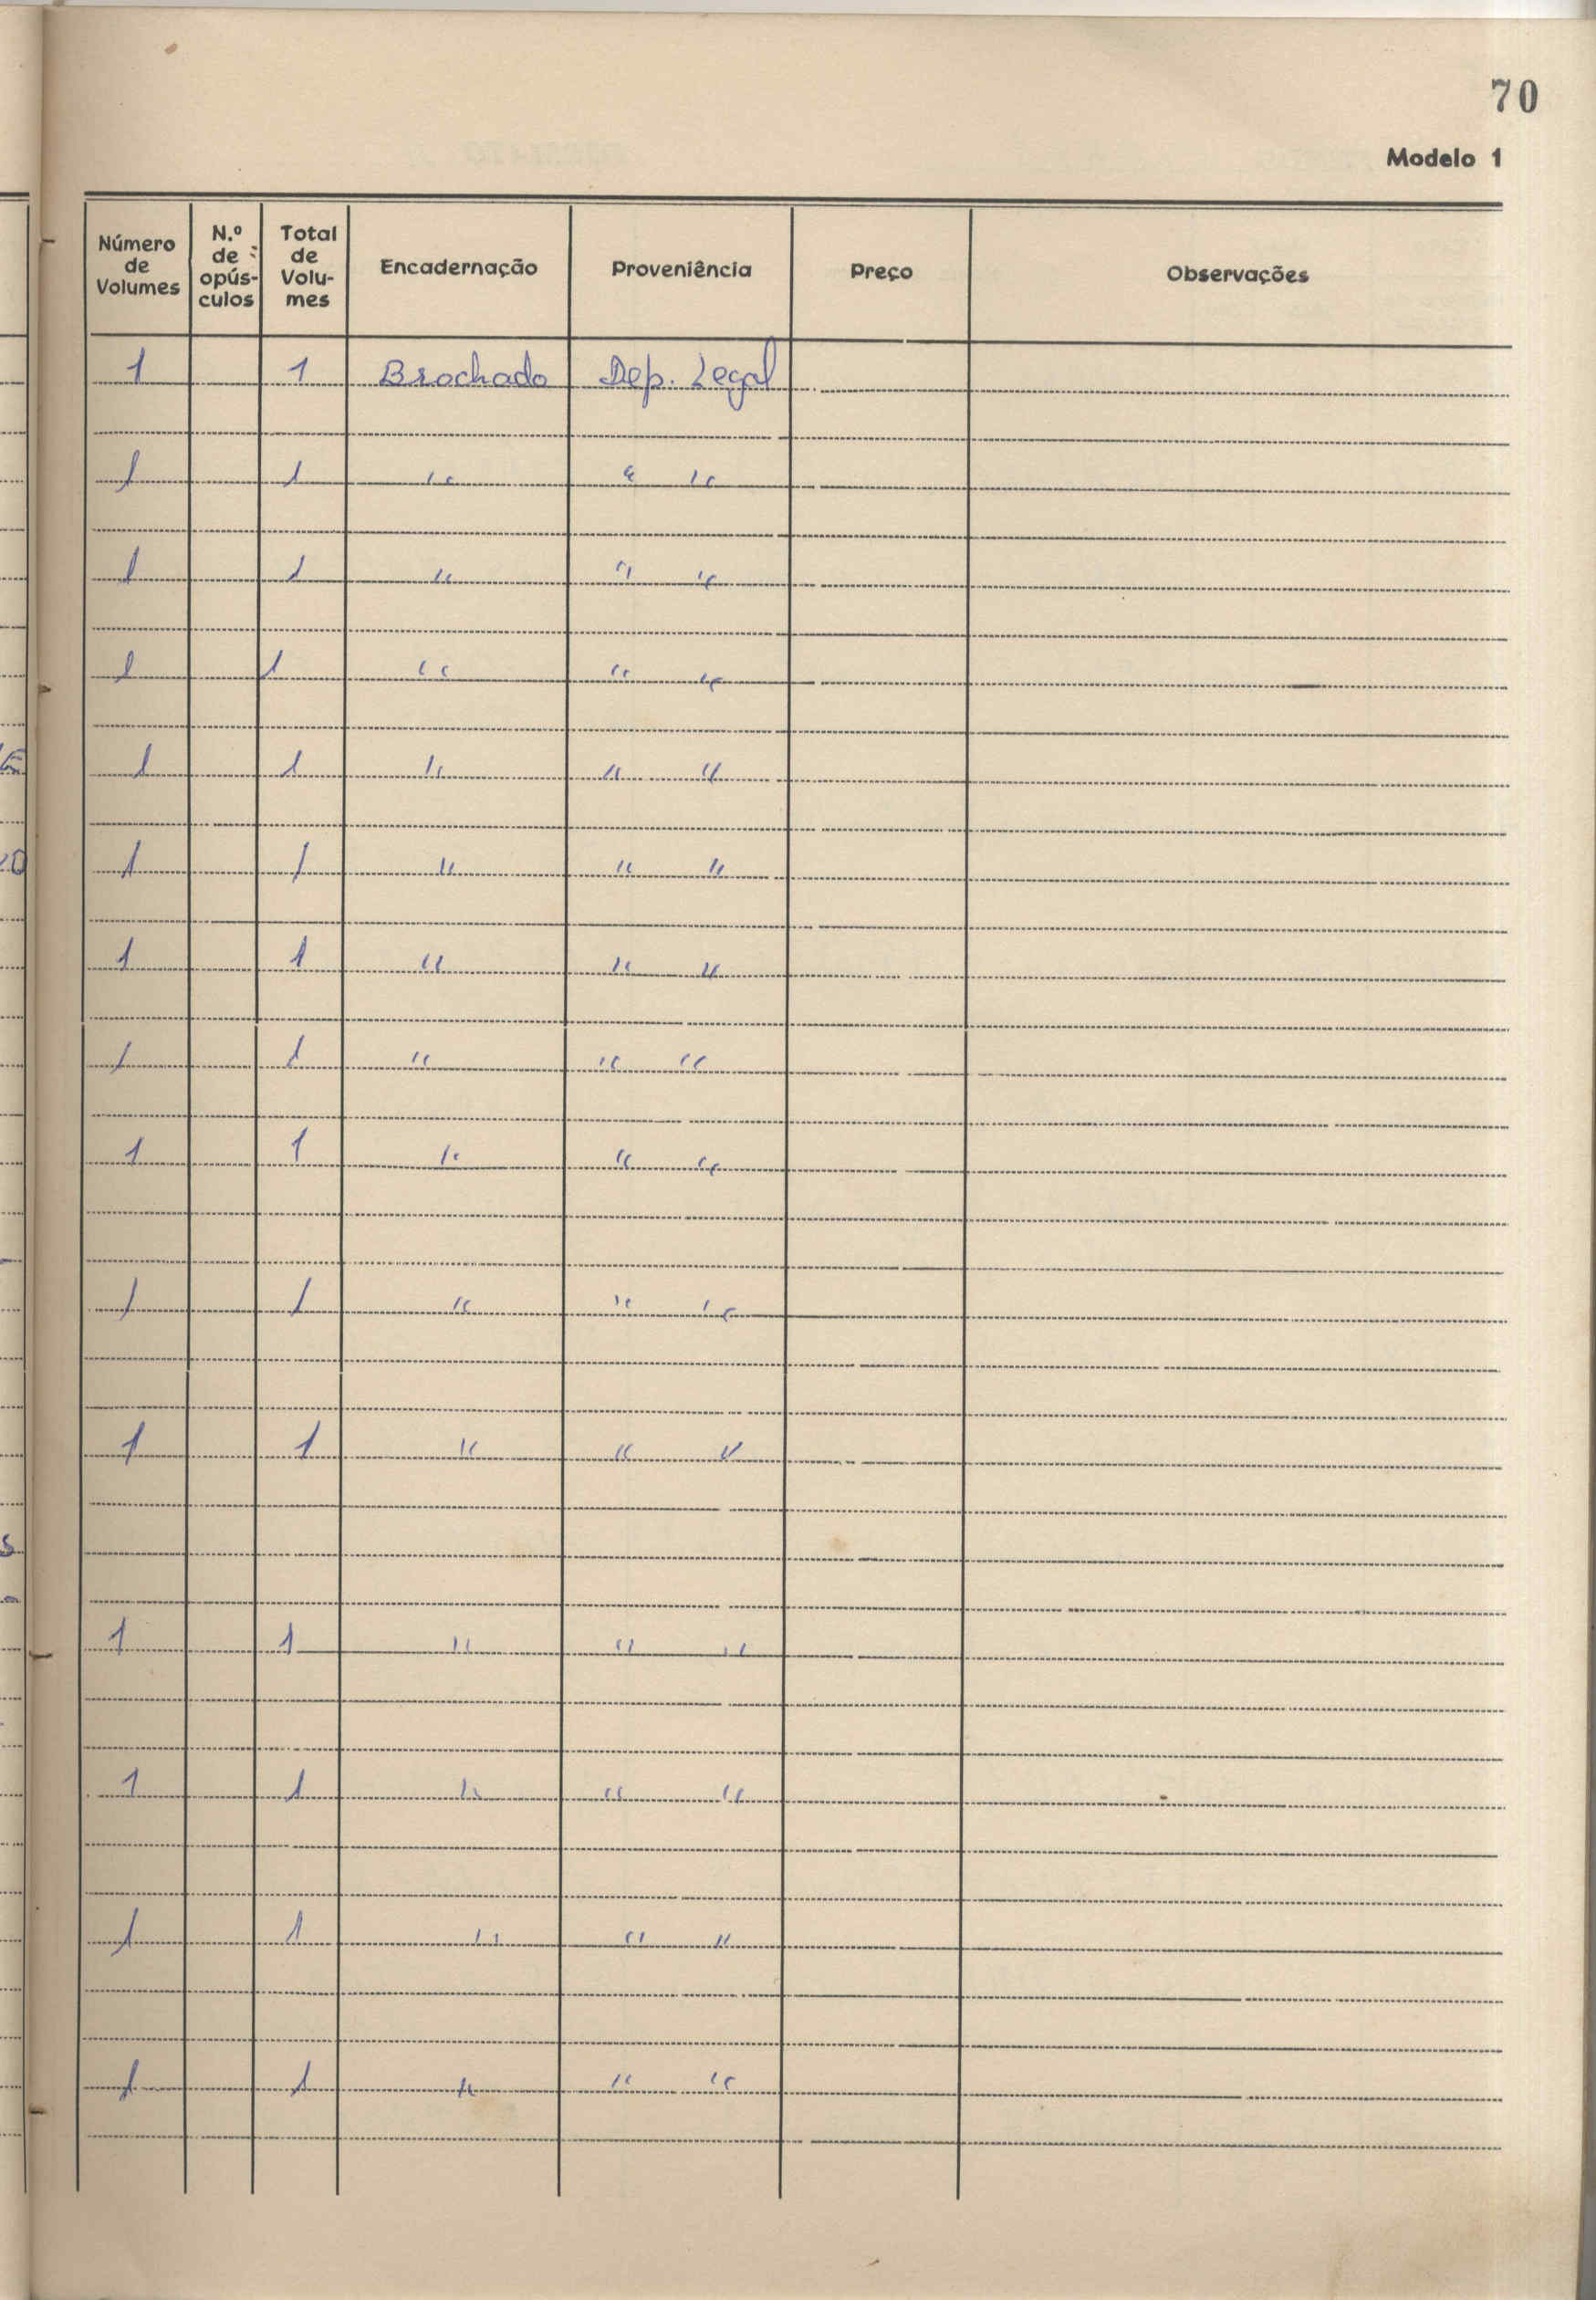 70
Modelo 1
Número de Volumes N.º de opús-culos Total de Volu-mes Encadernação Proveniência Preço Observações
1 1 Brochado Dep. Legal
1 1 " " "
1 1 " " "
1 1 " " "
1 1 " " "
1 1 " " "
1 1 " " "
1 1 " " "
1 1 " " "
1 1 " " "
1 1 " " "
1 1 " " "
1 1 " " "
1 1 " " "
1 1 " " "